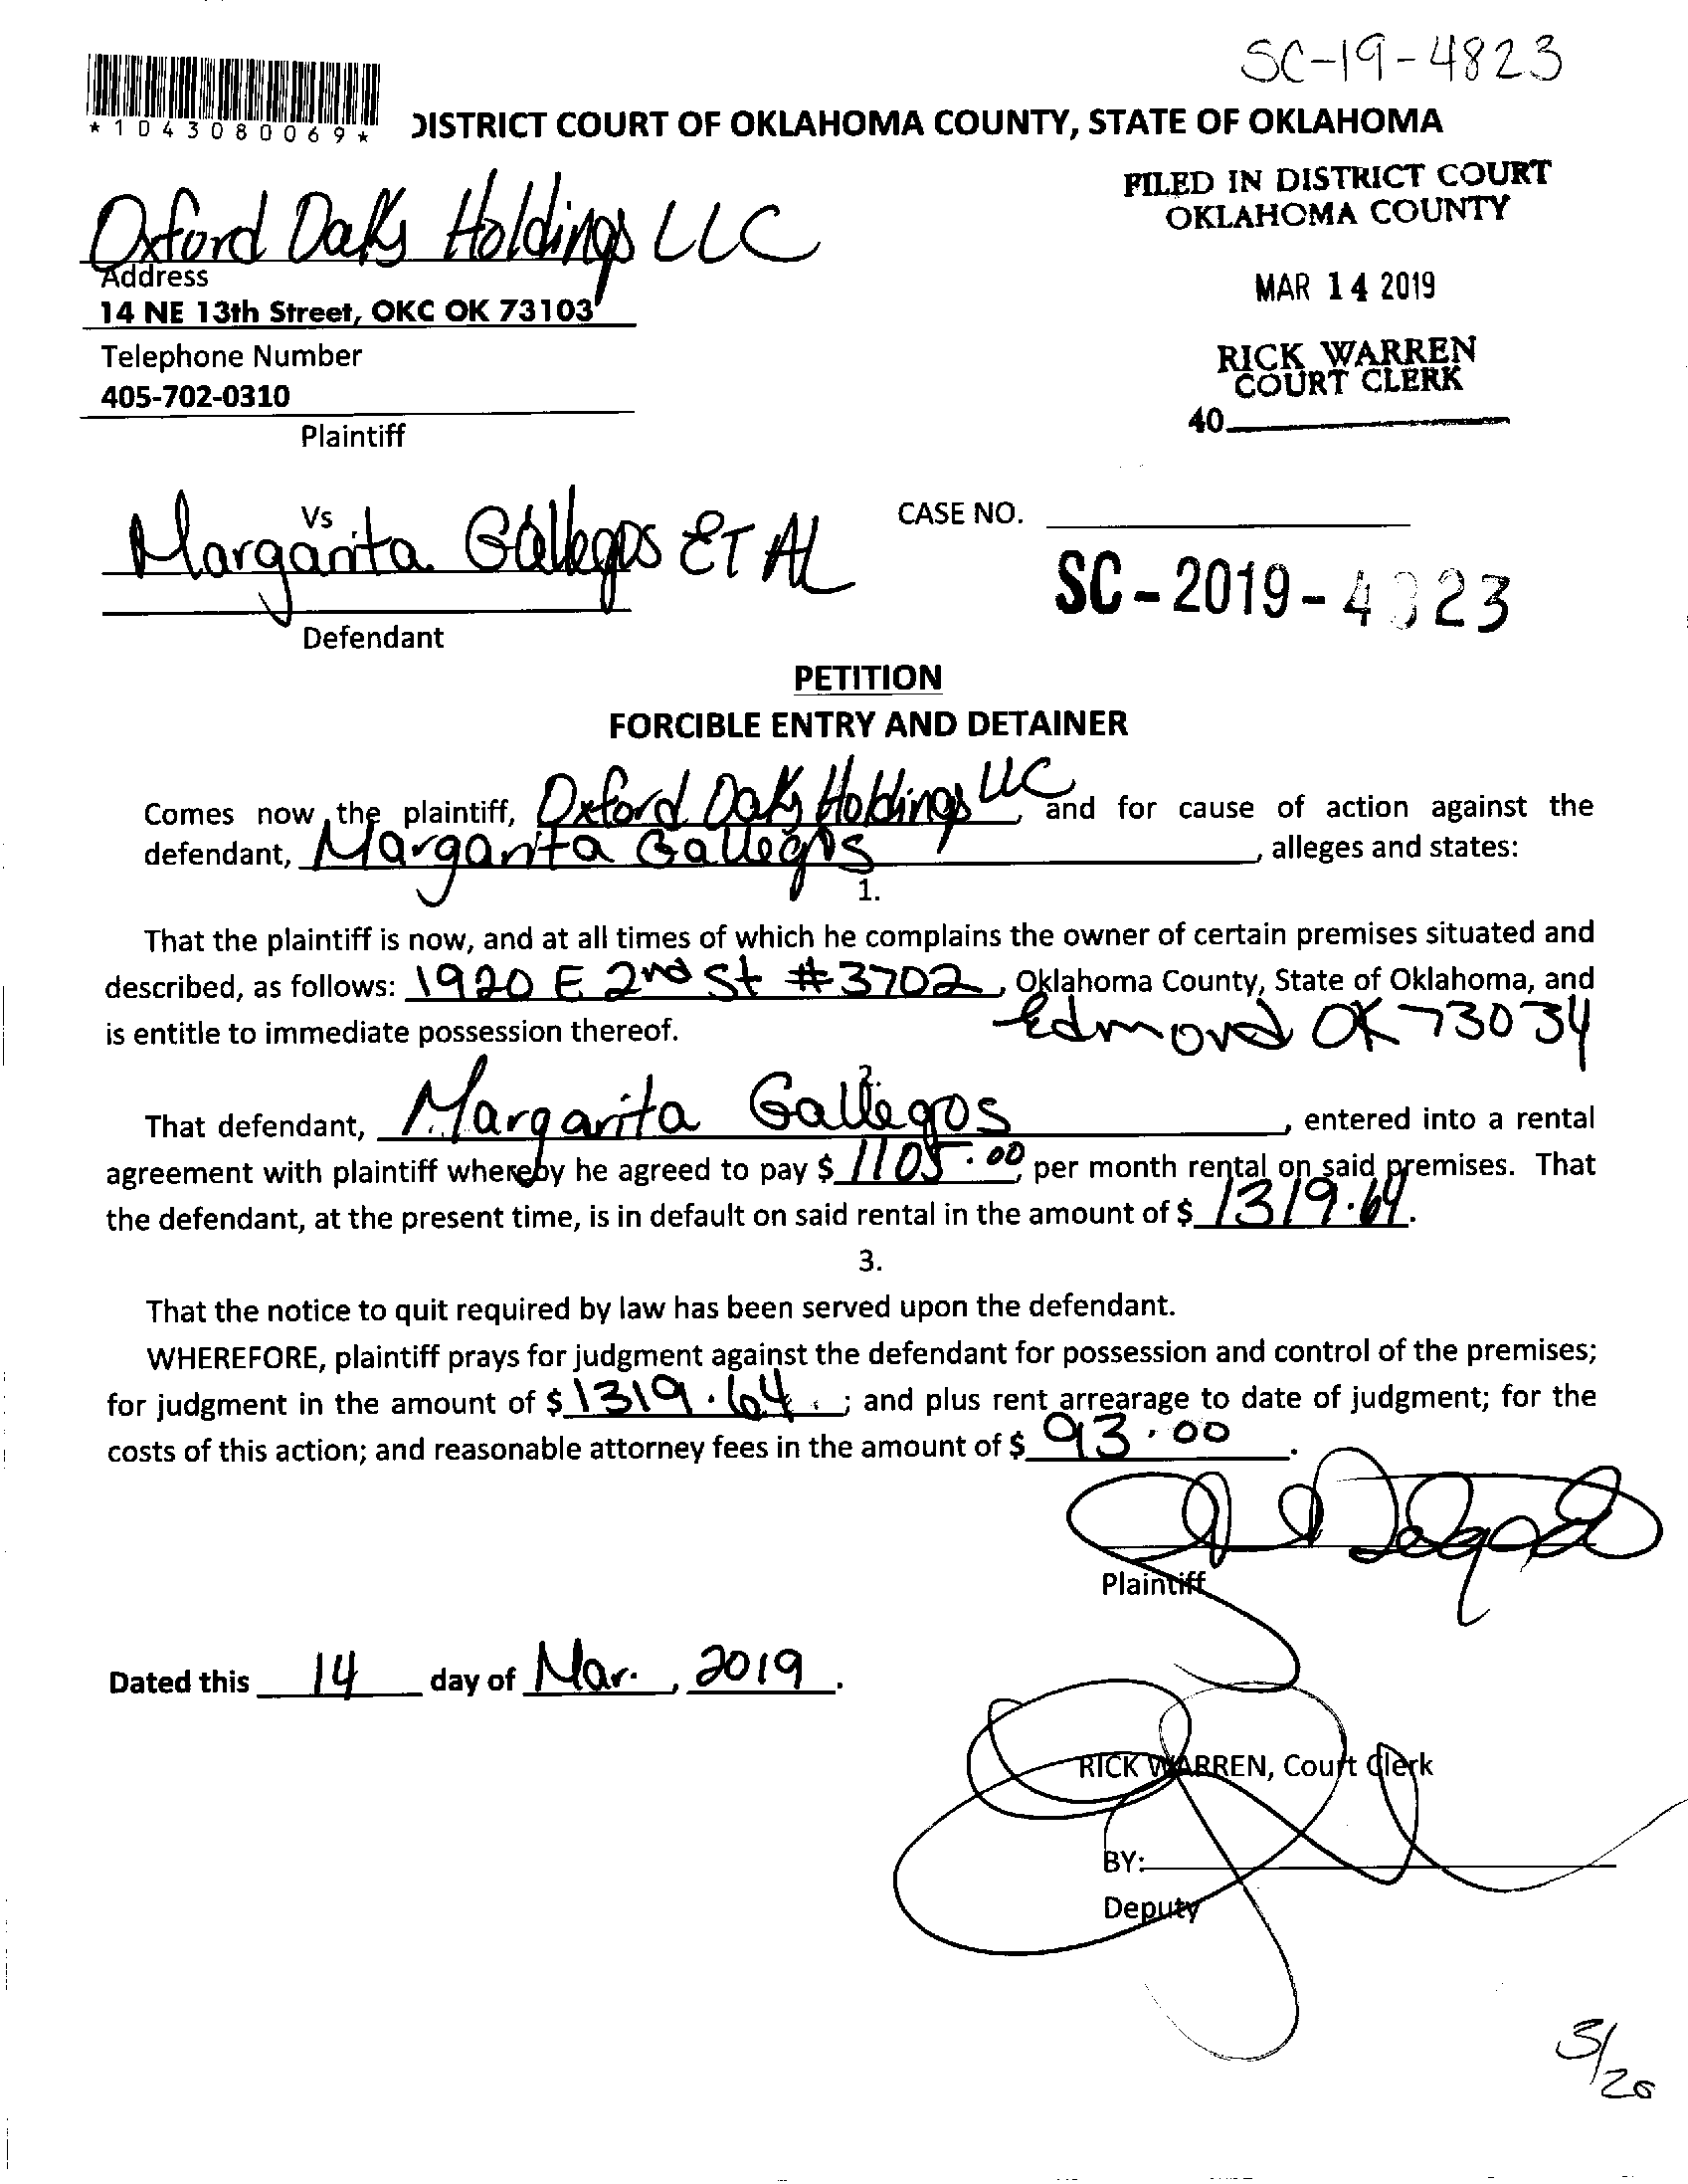 SC-19-4823
*1043080069*
DISTRICT COURT OF OKLAHOMA COUNTY, STATE OF OKLAHOMA
FILED IN DISTRICT COURT
OKLAHOMA COUNTY
MAR 14 2019
RICK WARREN
COURT CLERK
40
Oxford Oaks Holdings LLC
Address
14 NE 13th Street, OKC OK 73103
Telephone Number
405-702-0310
Plaintiff
Vs
Margarita Gallegos ET AL
Defendant
CASE NO.
SC-2019-4823
PETITION
FORCIBLE ENTRY AND DETAINER
Comes now the plaintiff, Oxford Oaks Holdings LLC, and for cause of action against the
defendant, Margarita Gallegos, alleges and states:
1.
That the plaintiff is now, and at all times of which he complains the owner of certain premises situated and
described, as follows: 1920 E 2nd St #3702, Oklahoma County, State of Oklahoma, and
is entitle to immediate possession thereof. Edmond OK 73034
2.
That defendant, Margarita Gallegos, entered into a rental
agreement with plaintiff whereby he agreed to pay $ 1105.00, per month rental on said premises. That
the defendant, at the present time, is in default on said rental in the amount of $ 1319.64.
3.
That the notice to quit required by law has been served upon the defendant.
WHEREFORE, plaintiff prays for judgment against the defendant for possession and control of the premises;
for judgment in the amount of $ 1319.64; and plus rent arrearage to date of judgment; for the
costs of this action; and reasonable attorney fees in the amount of $ 93.00.
Plaintiff
Dated this 14 day of Mar., 2019.
RICK WARREN, Court Clerk
BY:
Deputy
3/20